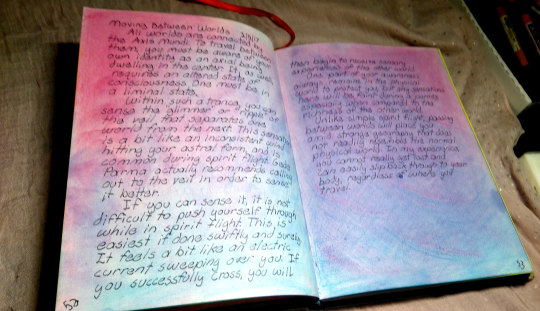 Moving Between Worlds 3/9/17
All worlds are connected by
the Axis Mundi. To travel between
them, you must be aware of your
own identity as an axial being
dwelling in the center. It also
requires an altered state of
consciousness. One must be in
a liminal state.
Within such a trance, you can
sense the glimmer or ripple of
the veil that separates one
world from the next. This sensation
is a bit like an inconsistent wind
hitting your astral form, and is
common during spirit flight. Gede
Parma actually recommends calling
out to the veil in order to sense
it better.
If you can sense it, it is not
difficult to push yourself through
while in spirit flight. This is
easiest if done swiftly and surely.
It feels a bit like an electric
current sweeping over you. If
you successfully cross, you will
52
then begin to receive sensory
experience of the other world.
One part of your awareness
always in the physical
to protect you, but any sensations
here will be faint
compared to the
richness of the other world.
Unlike simple spirit flight, passing
between worlds will place you
in a strange geography that does
not readily resemble the normal
physical world. This
you cannot really get lost and
can easily slip back through to your
body, regardless of where you
travel.
53